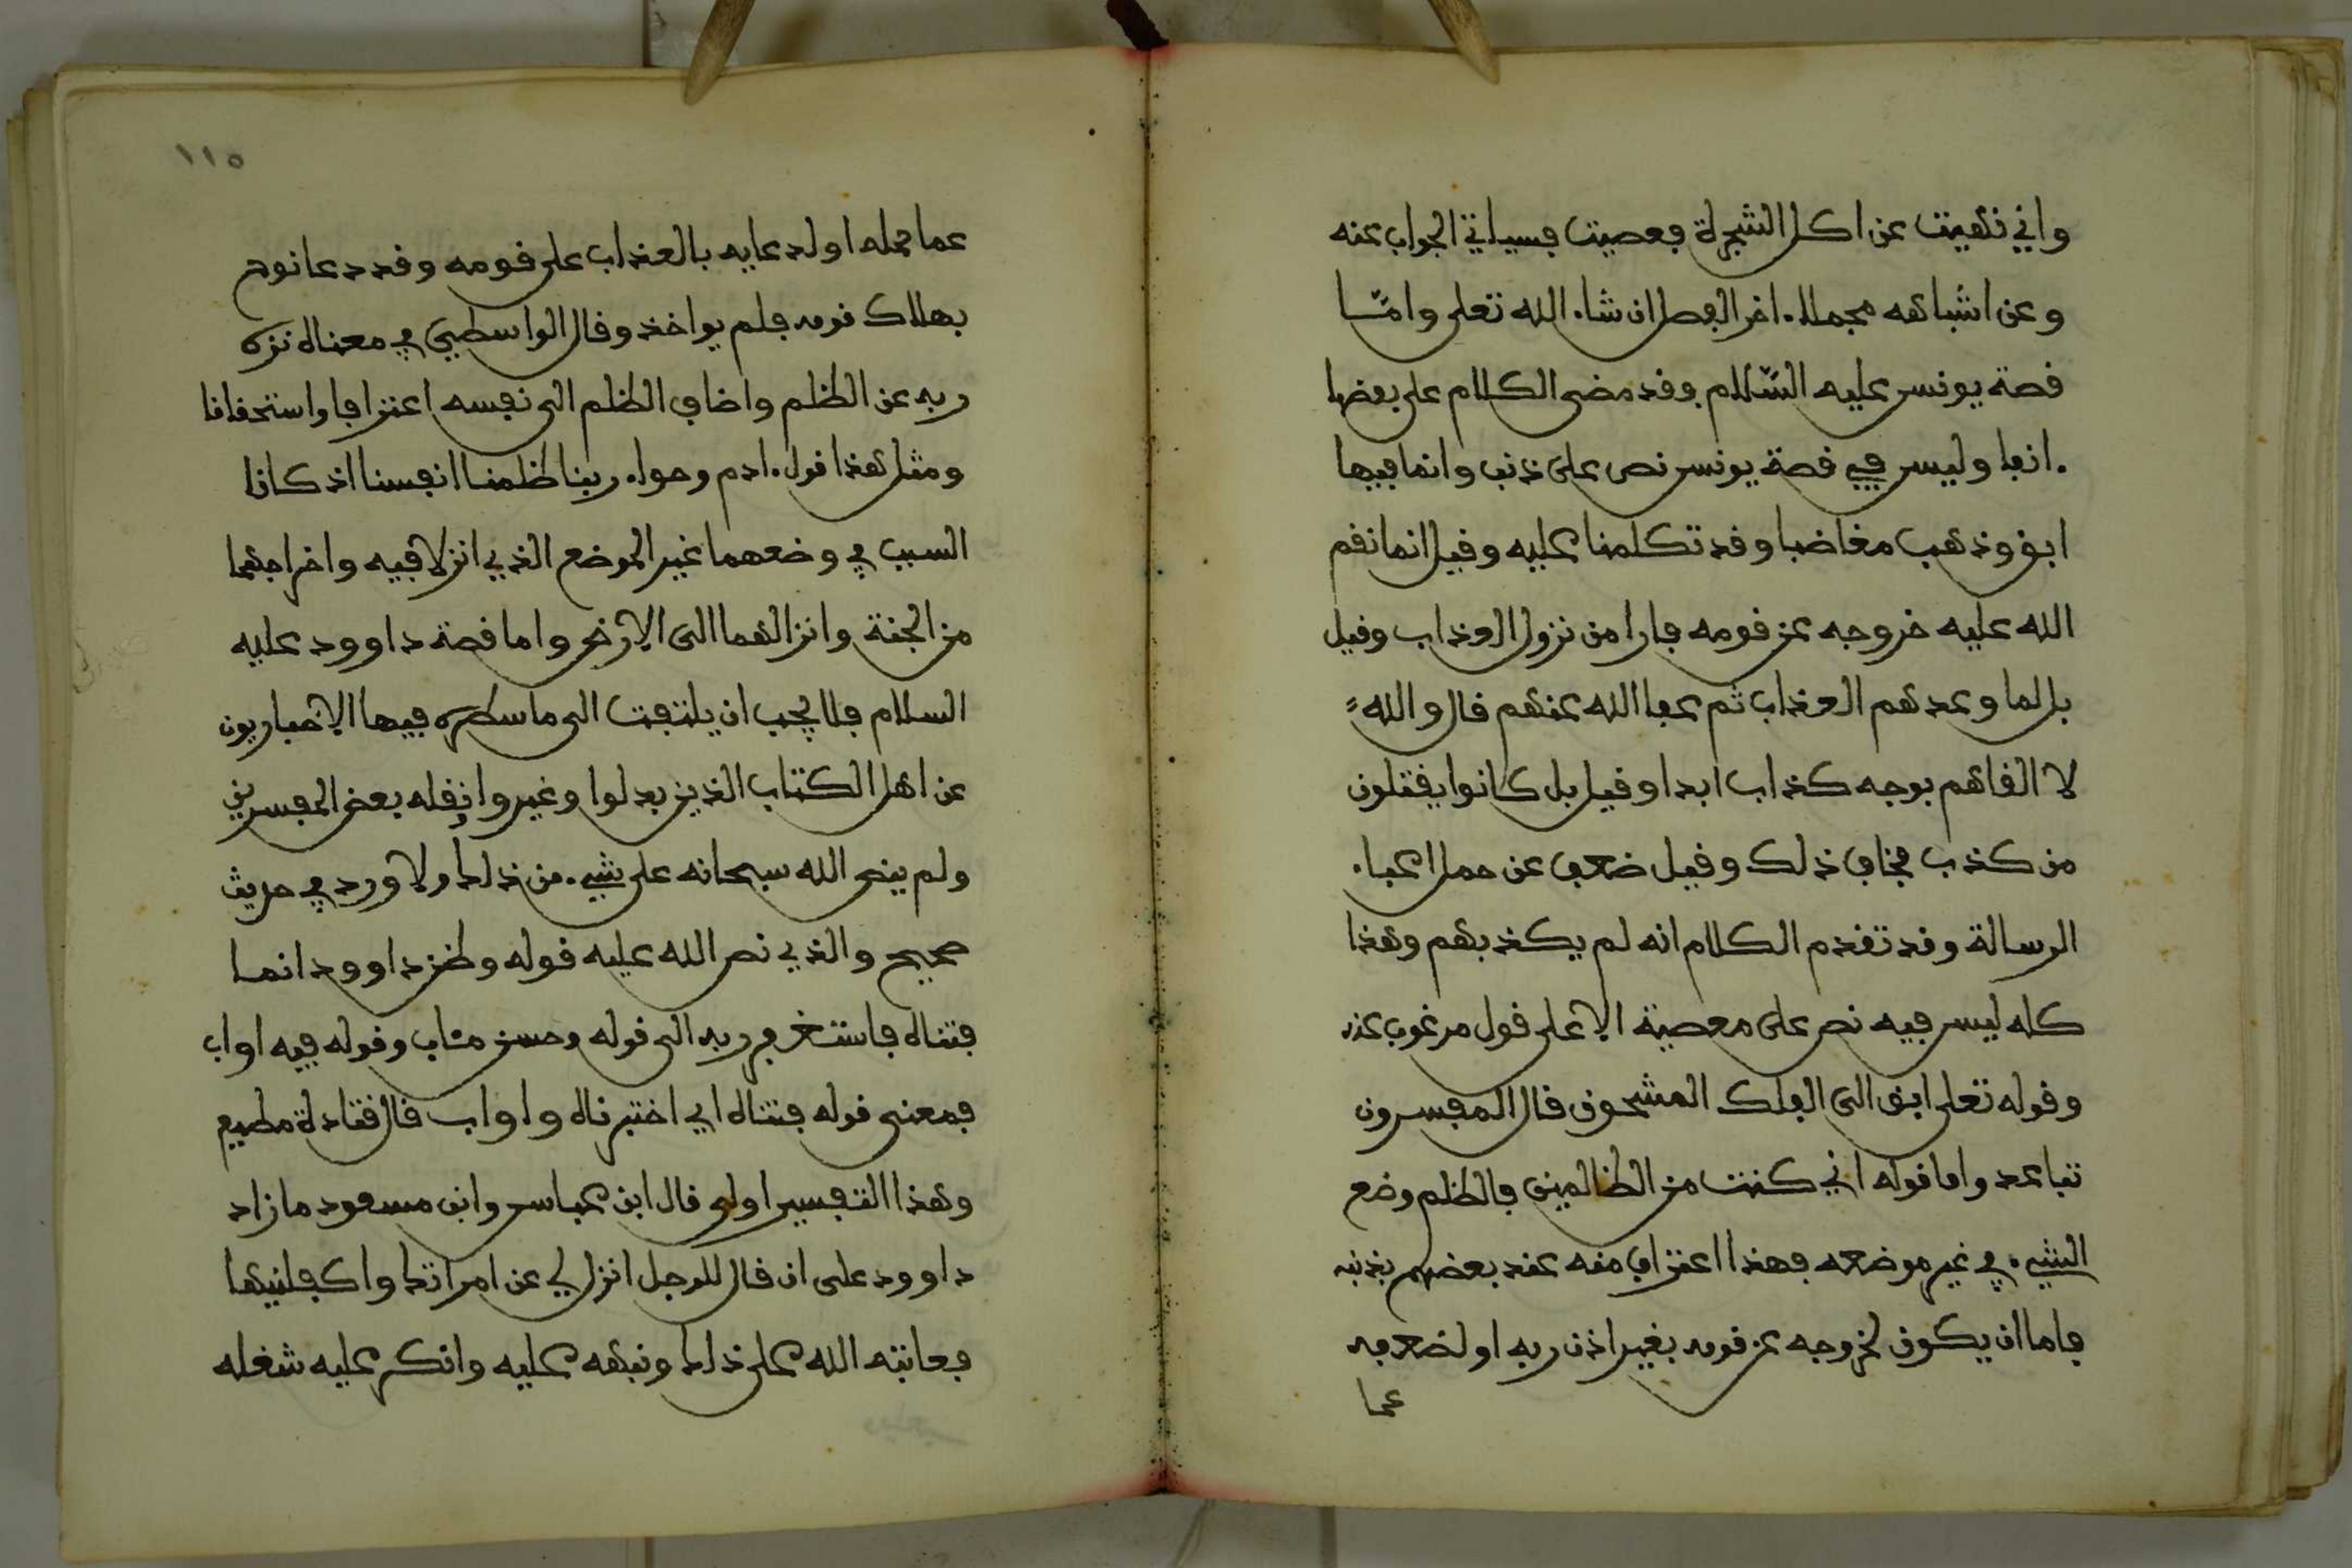 واني نهيت عن اكل الشجرة فعصيت فسياتي الجواب عنه
وعن اشباهه مجملا ءاخر الفصل ان شاء الله تعلى وامّا
قصة يونس عليه السّلام فقد مضى الكلام على بعضها
ءانفا وليس في قصة يونس نص على ذنب وانما فيها
ابق وذهب مغاضبا وقد تكلمنا عليه وقيل انما نقم
الله عليه خروجه عن قومه فارا من نزول العذاب وقيل
بل لما وعدهم العذاب ثم عفا الله عنهم قال والله
لا القاهم بوجه كذاب ابدا وقيل بل كانوا يقتلون
من كذب فخاف ذلك وقيل ضعف عن حمل اعباء
الرسالة وقد تقدم الكلام انه لم يكذبهم وهذا
كله ليس فيه نص على معصية الا على قول مرغوب عنه
وقوله تعلى ابق الى الفلك المشحون قال المفسرون
تباعد واما قوله اني كنت من الظالمين فالظلم وضع
الشيء في غير موضعه فهذا اعتراف منه عند بعضهم بذنبه
فاما ان يكون لخروجه عن قومه بغير اذن ربه او لضعفه
عما
١١٥
عما حمله او لدعايه بالعذاب على قومه وقد دعا نوح
بهلاك قومه فلم يواخذ وقال الواسطي في معناه نزه
ربه عن الظلم واضاف الظلم الى نفسه اعترافا واستحقاقا
ومثل هذا قول ءادم وحواء ربنا ظلمنا انفسنا اذ كانا
السبب في وضعهما غير الموضع الذي انزلا فيه واخراجهما
من الجنة وانزالهما الى الارض واما قصة داوود عليه
السلام فلا يجب ان يلتفت الى ما سطره فيها الاخباريون
عن اهل الكتاب الذين بدلوا وغيروا ونقله بعض المفسرين
ولم ينص الله سبحانه على شيء من ذلك ولا ورد في حديث
صحيح والذي نص الله عليه قوله وظن داوود انما
فتناه فاستغفر ربه الى قوله وحسن مئاب وقوله فيه اواب
فمعنى قوله فتناه اي اختبرناه واواب قال قتادة مطيع
وهذا التفسير اولى قال ابن عباس وابن مسعود ما زاد
داوود على ان قال للرجل انزل لي عن امراتك واكفلنيها
فعاتبه الله على ذلك ونبهه عليه وانكر عليه شغله